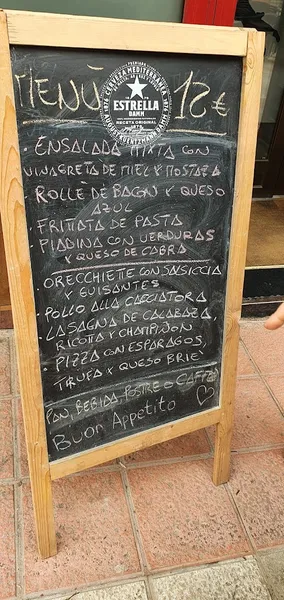 MENÚ 12€
PREMIUM
CERVEZA MEDITERRÁNEA
1876
ESTRELLA
DAMM
RECETA ORIGINAL
1876
AUGUST KUENTZMANN DAMM
· ENSALADA MIXTA CON
VINAGRETA DE MIEL Y MOSTAZA
ROLLE DE BACON Y QUESO
AZUL
· FRITTATA DE PASTA
· PIADINA CON VERDURAS
Y QUESO DE CABRA
· ORECCHIETTE CON SALSICCIA
Y GUISANTES
· POLLO ALLA CACCIATORA
· LASAGNA DE CALABAZA,
RICOTTA Y CHAMPIÑON
· PIZZA CON ESPARAGOS,
TRUFA Y QUESO BRIE
PAN, BEBIDA, POSTRE O CAFFÈ
Buon Appetito